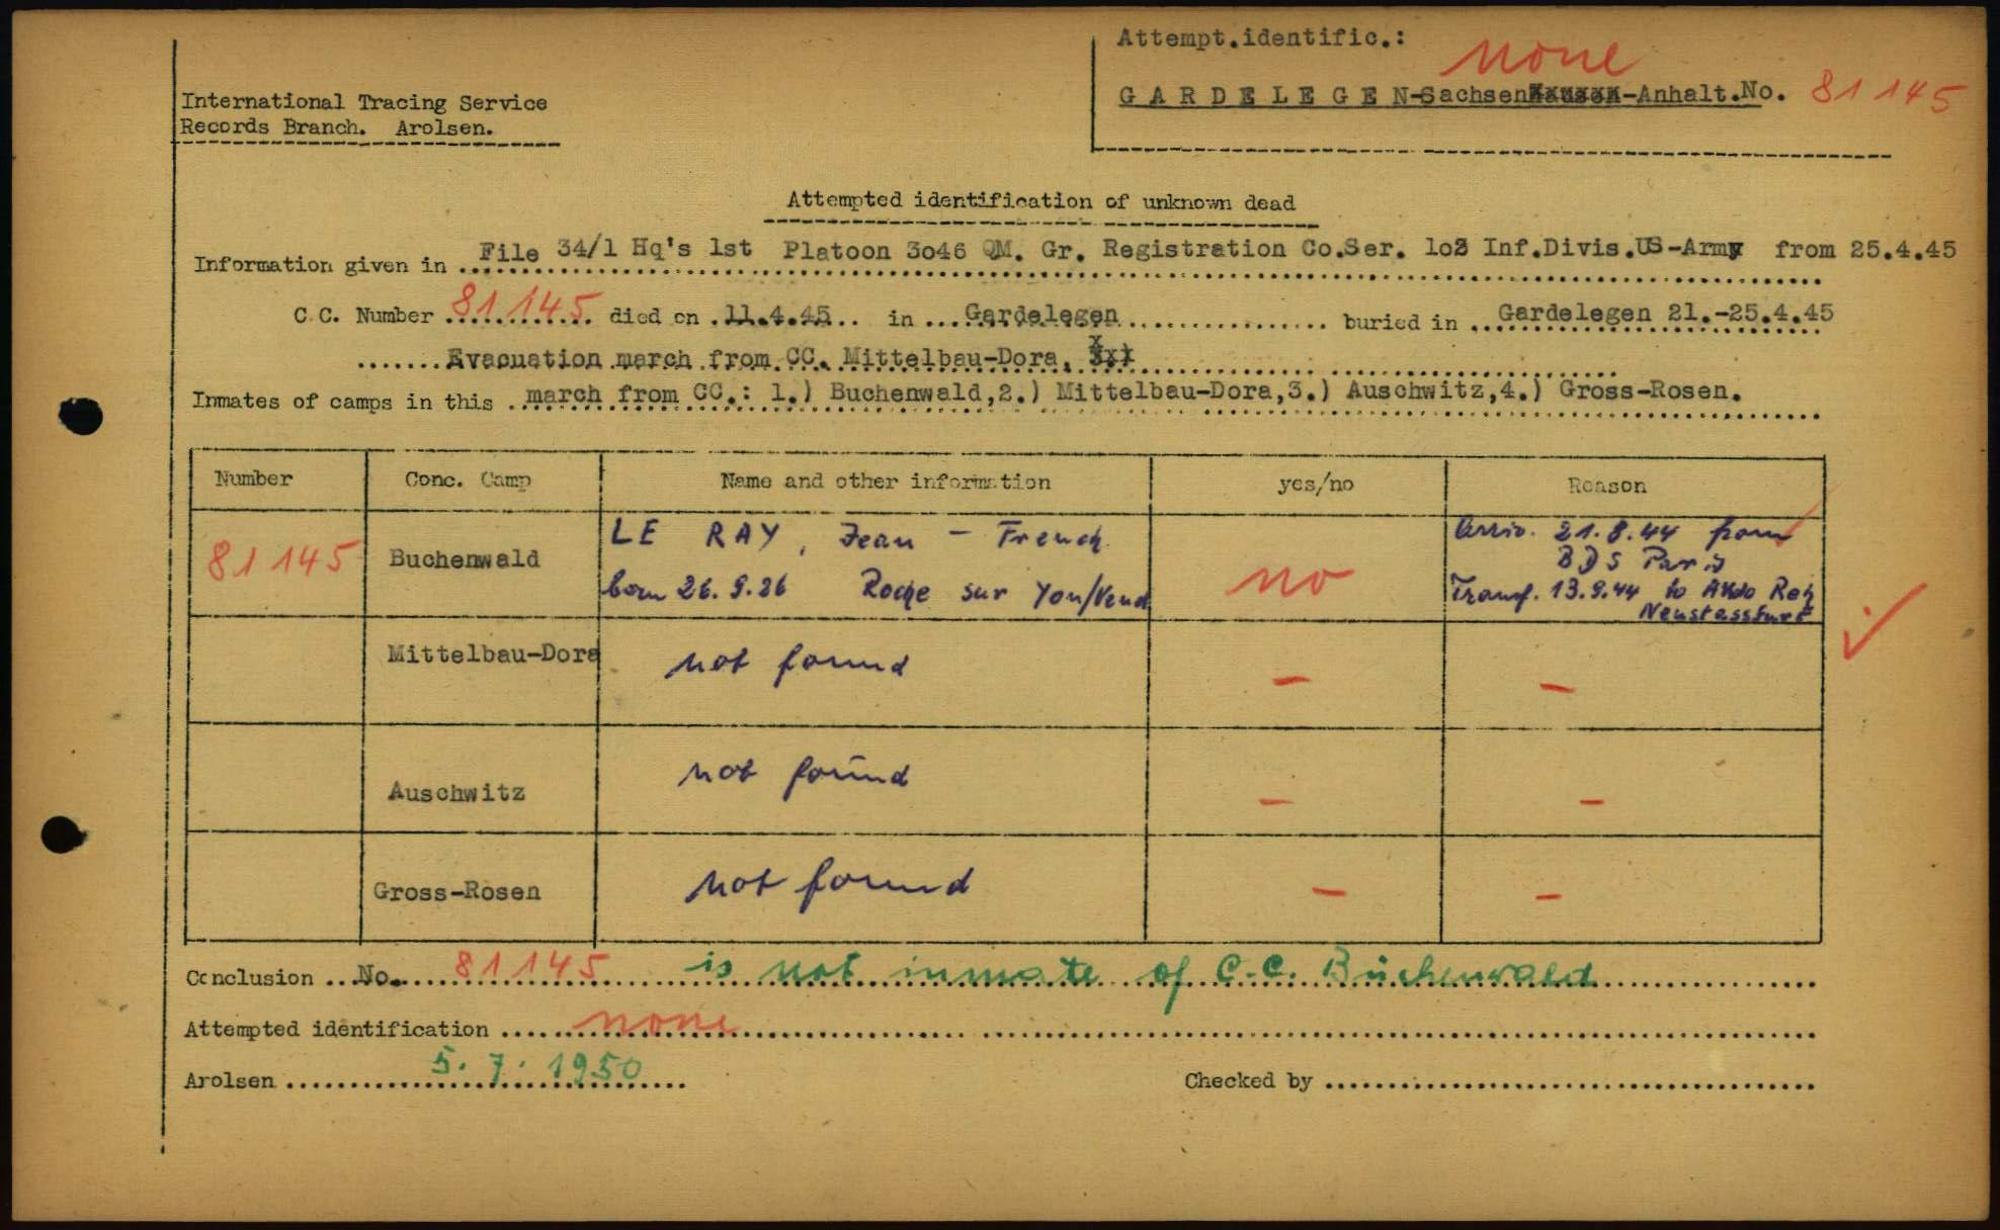 Attempt.identific.: none
GARDELEGEN-Sachsen-Anhalt.No. 81 145
International Tracing Service
Records Branch. Arolsen.
Attempted identification of unknown dead
Information given in File 34/1 Hq's 1st Platoon 3o46 QM. Gr. Registration Co.Ser. 1o2 Inf.Divis.US-Army from 25.4.45
C.C. Number 81 145 died on 11.4.45 in Gardelegen buried in Gardelegen 21.-25.4.45
Evacuation march from CC. Mittelbau-Dora.
Inmates of camps in this march from CC.: 1.) Buchenwald,2.) Mittelbau-Dora,3.) Auschwitz,4.) Gross-Rosen.
Number Conc. Camp Name and other information yes/no Reason
81 145 Buchenwald LE RAY, Jean - French no Arriv. 21.8.44 from
BDS Paris
born 26.9.26 Roche sur Yon/Vend Transf. 13.9.44 to AKdo Reh
Neustassfurt
Mittelbau-Dora not found - -
Auschwitz not found - -
Gross-Rosen not found - -
Conclusion No. 81 145 is not inmate of C.C. Buchenwald
Attempted identification none
Arolsen 5.7.1950 Checked by